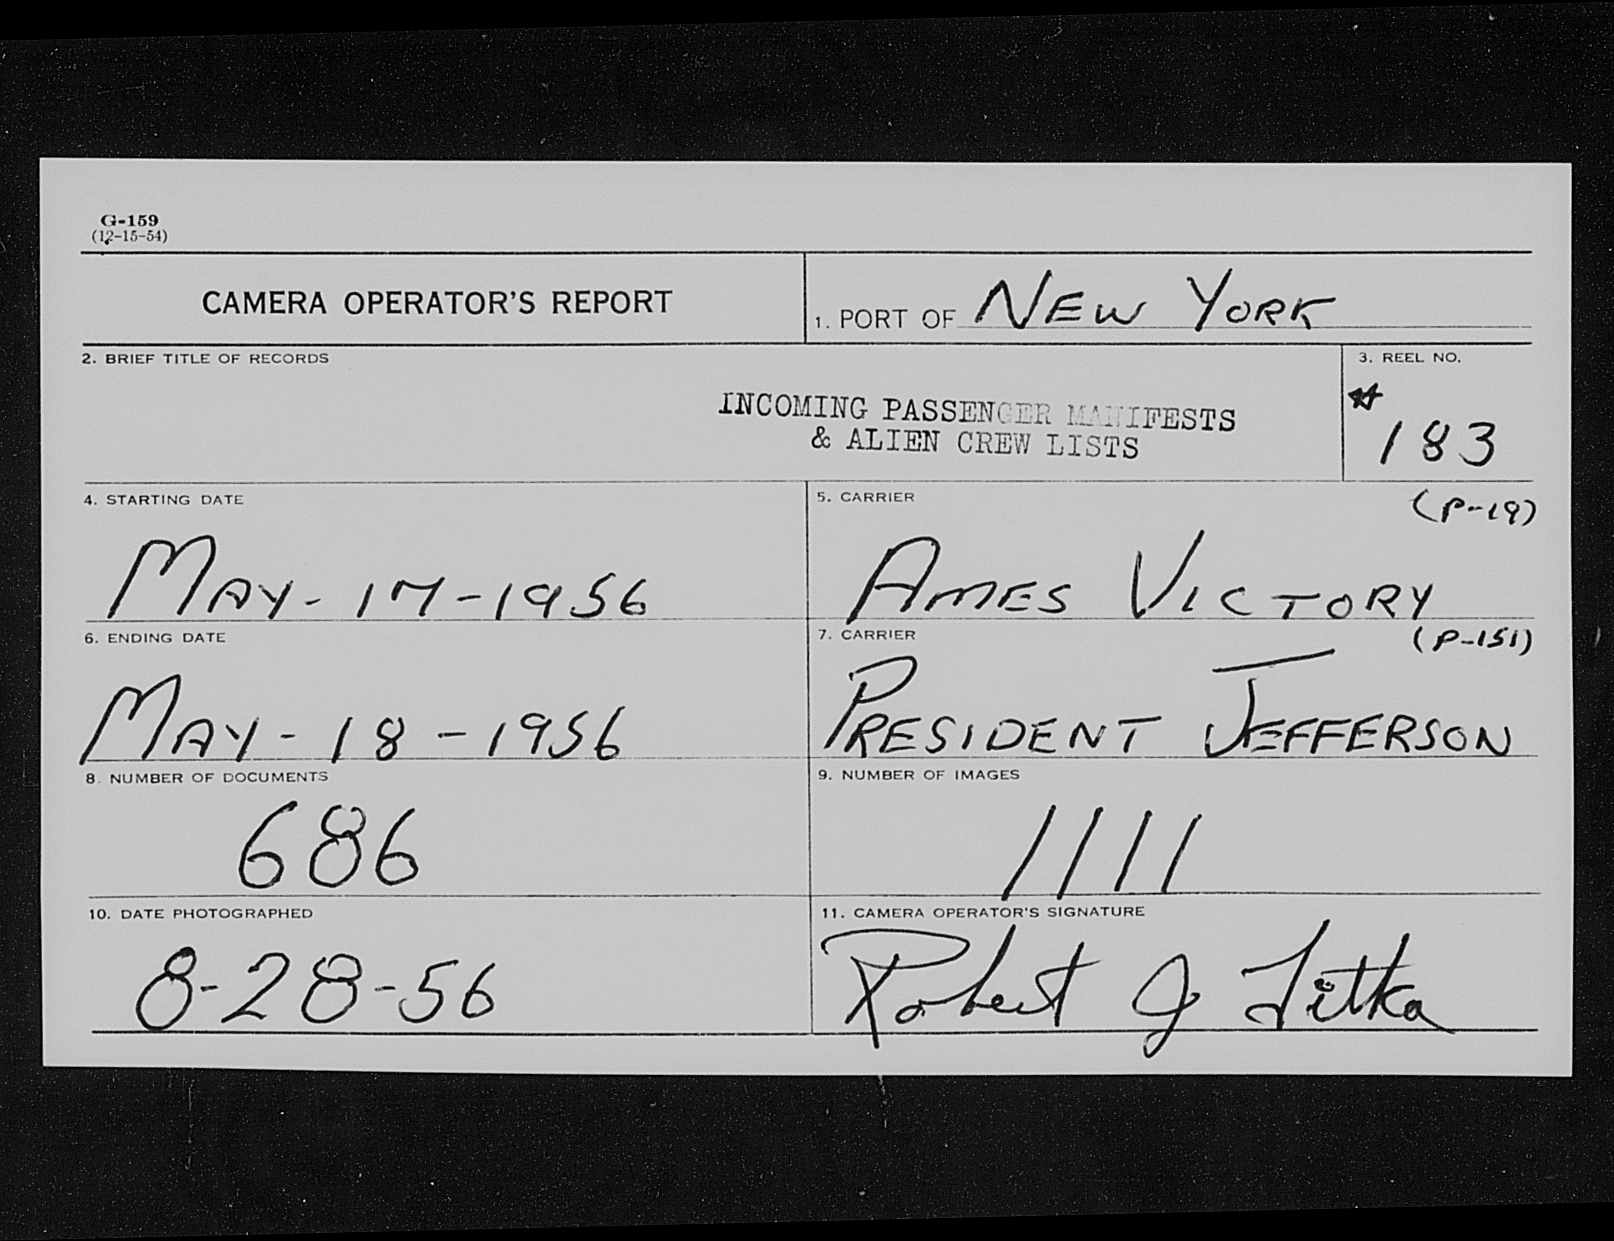 G-159
(12-15-54)
CAMERA OPERATOR'S REPORT
1. PORT OF NEW YORK
2. BRIEF TITLE OF RECORDS
INCOMING PASSENGER MANIFESTS
& ALIEN CREW LISTS
3. REEL NO.
# 183
4. STARTING DATE
MAY-17-1956
5. CARRIER
(P-19)
AMES VICTORY
6. ENDING DATE
MAY-18-1956
7. CARRIER
(P-151)
PRESIDENT JEFFERSON
8. NUMBER OF DOCUMENTS
686
9. NUMBER OF IMAGES
1111
10. DATE PHOTOGRAPHED
8-28-56
11. CAMERA OPERATOR'S SIGNATURE
Robert J